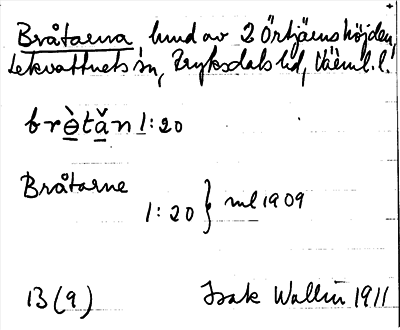 Bråtarna hmd av 2 Örtjärnshöjden,
Lekvattnets sn, Fryksdals hd, Värml. l.
brè̱tǎ̱n 1:20
Bråtarne
1:20 } ml 1909
B (a)
Isak Wallin 1911